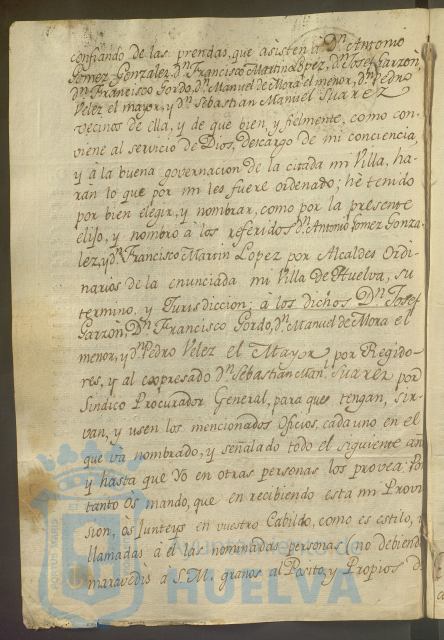 confiando de las prendas, que asisten à Dn. Antonio
Gomez Gonzalez, dn. Francisco Martin Lopez, dn. Josef Garzon,
dn. Francisco Gordo, dn. Manuel de Mora el menor, dn. Pedro
Velez el mayor, y dn. Sebastian Manuel Suarez
vecinos de ella, y de que bien, y fielmente, como con-
viene al servicio de Dios, descargo de mi conciencia,
y à la buena governacion de la citada mi Villa, ha-
rán lo que por mi les fuere ordenado; hè tenido
por bien elegir, y nombrar, como por la presente
elijo, y nombro à los referidos dn. Antonio Gomez Gonza-
lez, y dn. Francisco Martin Lopez por Alcaldes Ordi-
narios de la enunciada mi Villa de Huelva, su
termino, y Jurisdiccion; à los dichos Dn. Josef
Garzon, Dn. Francisco Gordo, dn. Manuel de Mora el
menor, y dn. Pedro Velez el Mayor, por Regido-
res, y al expresado dn. Sebastian Manl. Suarez por
Sindico Procurador General, para que tengan, sir-
van, y usen los mencionados Oficios, cada uno en el
que và nombrado, y señalado todo el siguiente añ
y hasta que Yo en otras personas los provea. Po
tanto Os mando, que en recibiendo esta mi Provi
sion, os Junteys en vuestro Cabildo, como es estilo, y
llamadas à èl las nominadas personas (no debiend
maravedis à S.M. granos al Posito, y Propios d
Ayuntamiento de
HUELVA